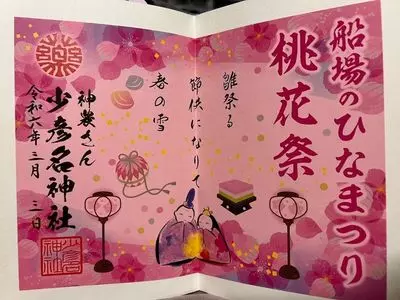 船場のひなまつり
桃花祭
雛祭る
節供になりて
春の雪
神農さん
少彦名神社
令和六年三月三日